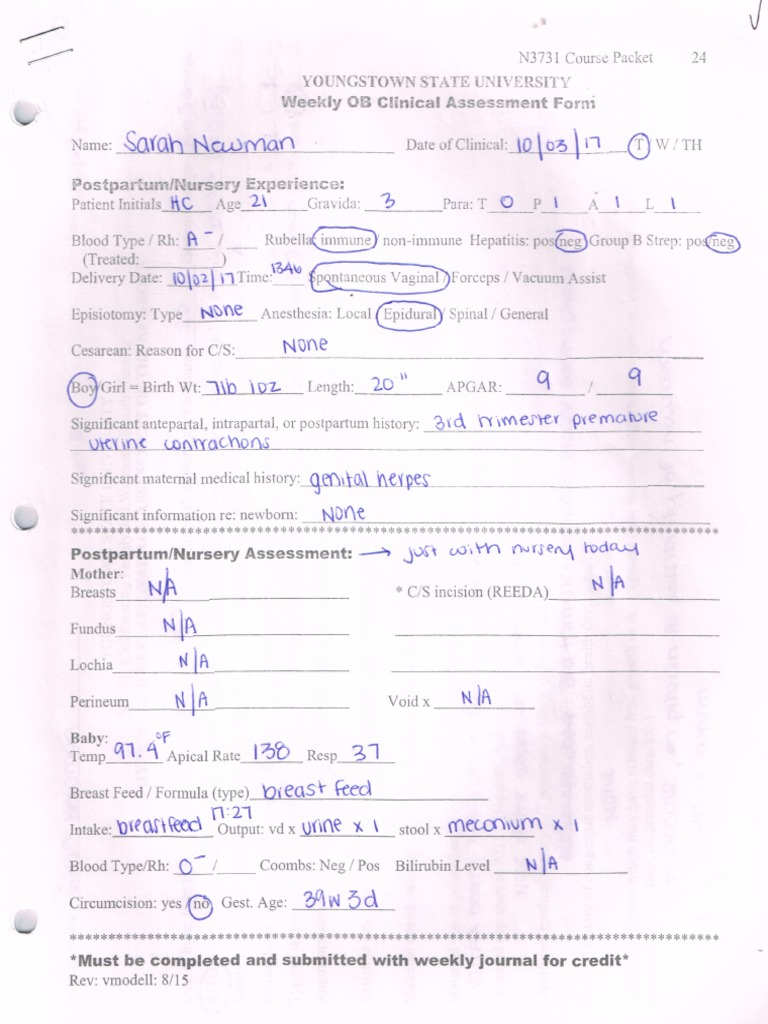 N3731 Course Packet 24
YOUNGSTOWN STATE UNIVERSITY
Weekly OB Clinical Assessment Form
Name: Sarah Newman Date of Clinical: 10/03/17 T / W / TH
Postpartum/Nursery Experience:
Patient Initials HC Age 21 Gravida: 3 Para: T 0 P 1 A 1 L 1
Blood Type / Rh: A- / Rubella: immune / non-immune Hepatitis: pos/neg Group B Strep: pos/neg
(Treated: )
Delivery Date: 10/02/17 Time: 1346 Spontaneous Vaginal / Forceps / Vacuum Assist
Episiotomy: Type None Anesthesia: Local / Epidural / Spinal / General
Cesarean: Reason for C/S: None
Boy/Girl = Birth Wt: 7lb 1oz Length: 20" APGAR: 9 / 9
Significant antepartal, intrapartal, or postpartum history: 3rd trimester premature
uterine contractions
Significant maternal medical history: genital herpes
Significant information re: newborn: None
Postpartum/Nursery Assessment: → just with nursery today
Mother:
Breasts N/A * C/S incision (REEDA) N/A
Fundus N/A
Lochia N/A
Perineum N/A Void x N/A
Baby:
Temp 97.9°F Apical Rate 138 Resp 37
Breast Feed / Formula (type) breast feed
Intake: breastfeed 17:27 Output: vd x urine x 1 stool x meconium x 1
Blood Type/Rh: O- / Coombs: Neg / Pos Bilirubin Level N/A
Circumcision: yes / no Gest. Age: 39w 3d
*Must be completed and submitted with weekly journal for credit*
Rev: vmodell: 8/15